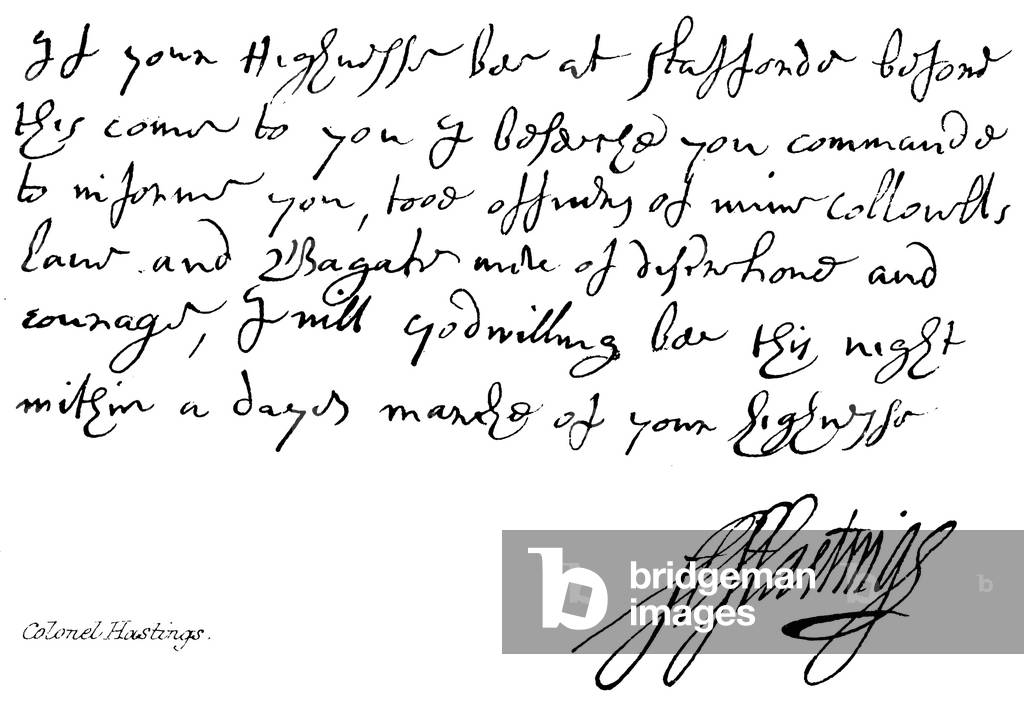 If your Highnesse bee at Stafforde before
this come to you I beseeche you commande
to informe you, tooe officers of mine Collonells
Lane and Bagate mile of and
courage, I will godwilling bee this night
within a dayes marche of your highnesse
Hastings
Colonel Hastings.
bridgeman
images
b